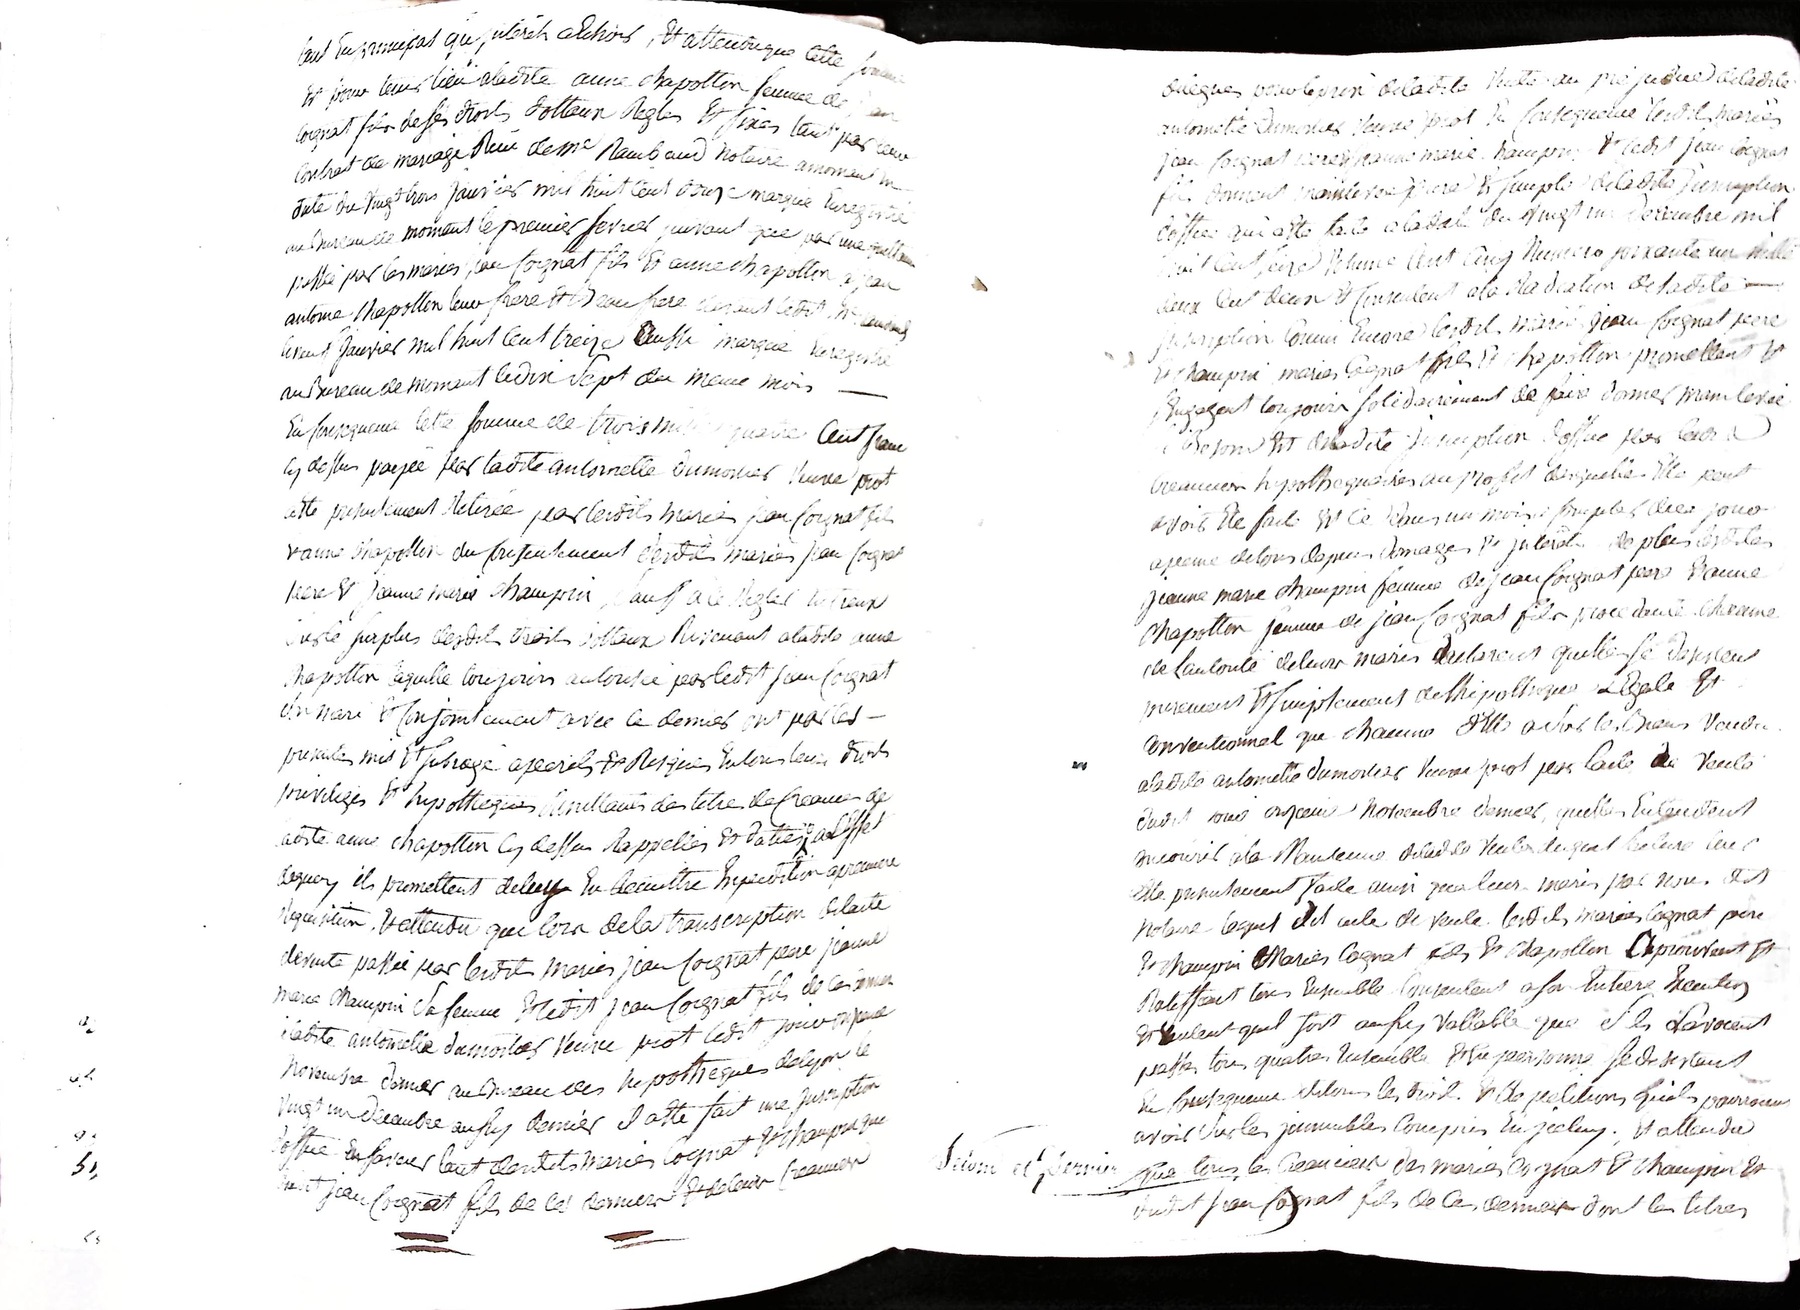 tant en principal qu'intérêts et autres, et attendu que cette somme
et pour tenir lieu a ladite anne chapotton femme de jean
Coignat fils de ses droits dottaux Regles et fixés tant par leur
Contrat de mariage Reçu de me Rambaud notaire a mornant en
date du vingt trois janvier mil huit cent douze marque Enregistré
au Bureau de mornant le premier fevrier suivant que par une quittance
passée par les mariés jean Coignat fils et anne chapotton a jean
antoine chapotton leur frere et Beau frere devant ledit me
janvier mil huit cent treize aussi marque Enregistré
au Bureau de mornant le dix sept du meme mois —
En consequence cette somme de trois mille quatre Cent francs
cy dessus payée par ladite antoinette Dumortier veuve piot
est presentement Retirée par lesdits mariés jean Coignat fils
et anne chapotton du Consentement desdits mariés jean Coignat
pere et jeanne marie champrin, sauf a se Regler entreux
sur le surplus desdits droits dottaux Revenant a ladite anne
chapotton laquelle toujours autorisée par ledit jean Coignat
son mari et Conjointement avec ce dernier ont par les —
presentes mis et subrogé a perils et Risques En tous leurs droits
privileges et hypotheques Resultants des titres de Creances de
ladite anne chapotton cy dessus Rappellés et datés a L'effet
dequoy ils promettent de luy En Remettre Expedition a premiere
Requisition, et attendu que lors de la transcription de l'acte
de vente passé par lesdits mariés jean Coignat pere jeanne
marie champrin sa femme et ledit jean Coignat fils de ces derniers
a ladite antoinette dumortier veuve piot ledit jour onzieme
Novembre dernier au Bureau des hypotheques de lyon le
vingt un decembre aussy dernier il a été fait une inscription
d'office En faveur tant desdits mariés Coignat et champrin que
dudit jean Coignat fils de ces derniers et de leurs Creanciers
delegues pour le prix de ladite vente au prejudice de ladite
antoinette Dumortier veuve piot En Consequence lesdits mariés
jean Coignat pere et jeanne marie champrin et ledit jean Coignat
fils donnent mainlevée pure et simple de ladite inscription
d'office qui a été faite a la date du vingt un decembre mil
huit cent seize volume Cent Cinq Numero soixante un mille
deux Cent deux et Consentent a la Radiation de ladite —
inscription Comme Encore lesdits mariés jean Coignat pere
et champrin mariés Coignat fils et chapotton promettent et
s'engagent toujours solidairement de faire donner mainlevée
si Besoin Est de ladite inscription d'office par leurs
Creanciers hypothequaires au profit desquelles Elle peut
avoir Eté faite et ce dans un mois a Compter de ce jour
a peine de tous depens domages et interets. de plus lesdites
jeanne marie champrin femme de jean Coignat pere et anne
chapotton femme de jean Coignat fils procedante chacune
de l'autorité de leurs maris declarent qu'elles se desistent
purement et simplement de l'hipotheque Legale Et
Conventionnel que chacune d'Elle a sur les Biens vendus
a ladite antoinette dumortier veuve piot par l'acte de vente
dudit jour onzieme Novembre dernier, qu'elles Entendent
concourir a la Maintenue de ladite vente Lecture leur
été presentement faite ainsi qu'a leurs maris par nous dit
Notaire lequel dit acte de vente lesdits mariés Coignat pere
et champrin et Mariés Coignat fils et chapotton approuvent et
Ratiffient tous Ensemble Consentent a son Entiere Execution
et veulent quil soit aussy vallable que s'ils L'avoient
passés tous quatres Ensemble et En personne se desistant
En Consequence de tous les droits et de petitions qu'ils pourroient
avoir sur les jmmeubles Compris En jceluy, et attendu
que tous les Creanciers des mariés Coignat et champrin et
dudit jean Coignat fils de ces derniers dont les titres